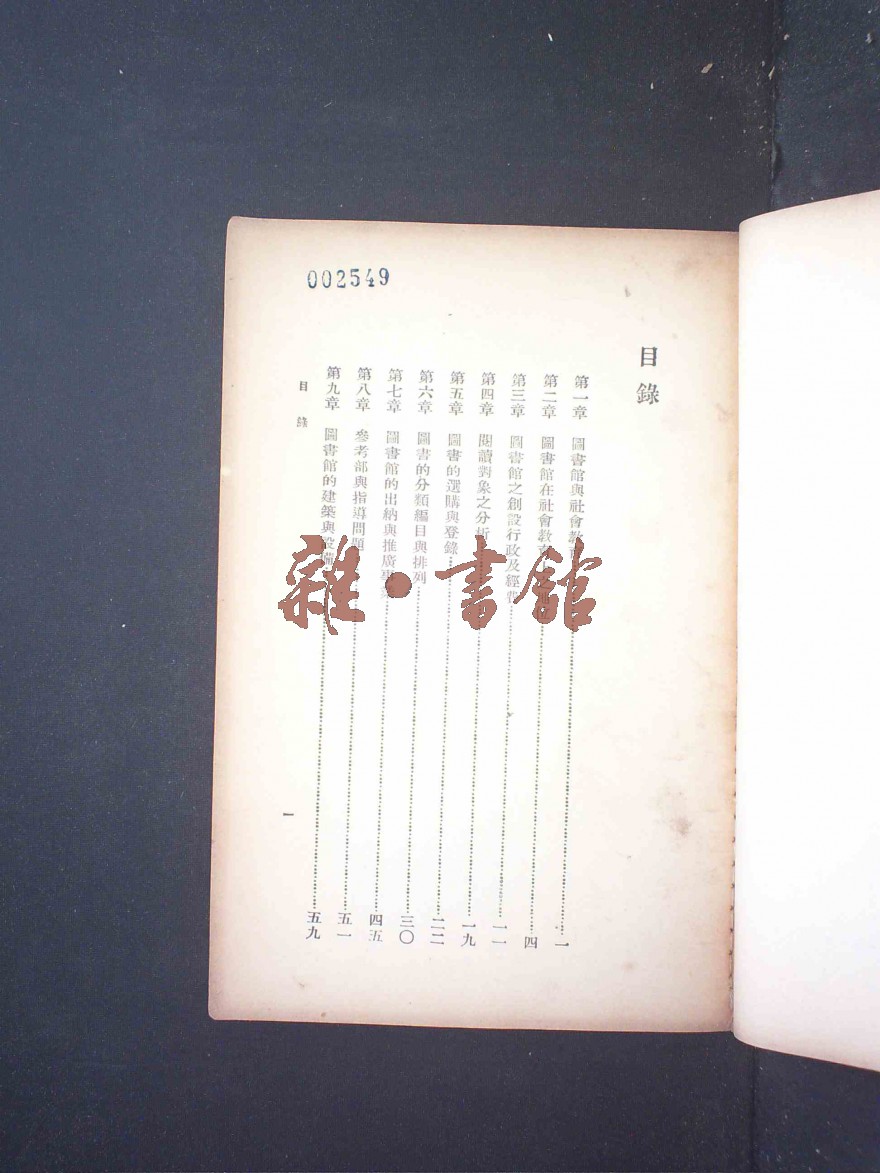 002549
目錄
第一章 圖書館與社會教育 一
第二章 圖書館在社會教育上 四
第三章 圖書館之創設行政及經費 一一
第四章 閱讀對象之分析 一九
第五章 圖書的選購與登錄 二二
第六章 圖書的分類編目與排列 三〇
第七章 圖書館的出納與推廣事業 四五
第八章 參考部與指導問題 五一
第九章 圖書館的建築與設備 五九
目錄
一
雜·書館